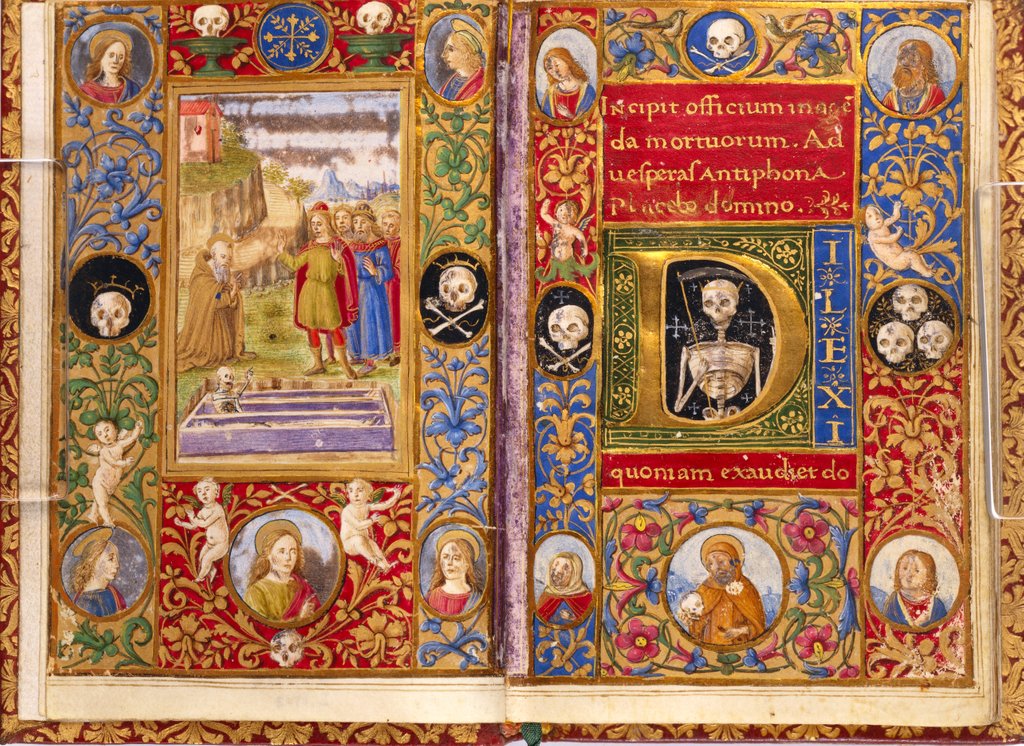 Incipit officium in agē
da mortuorum. Ad
uesperas AntiphonA
Placebo domino.
DILEXI
quoniam exaudiet do